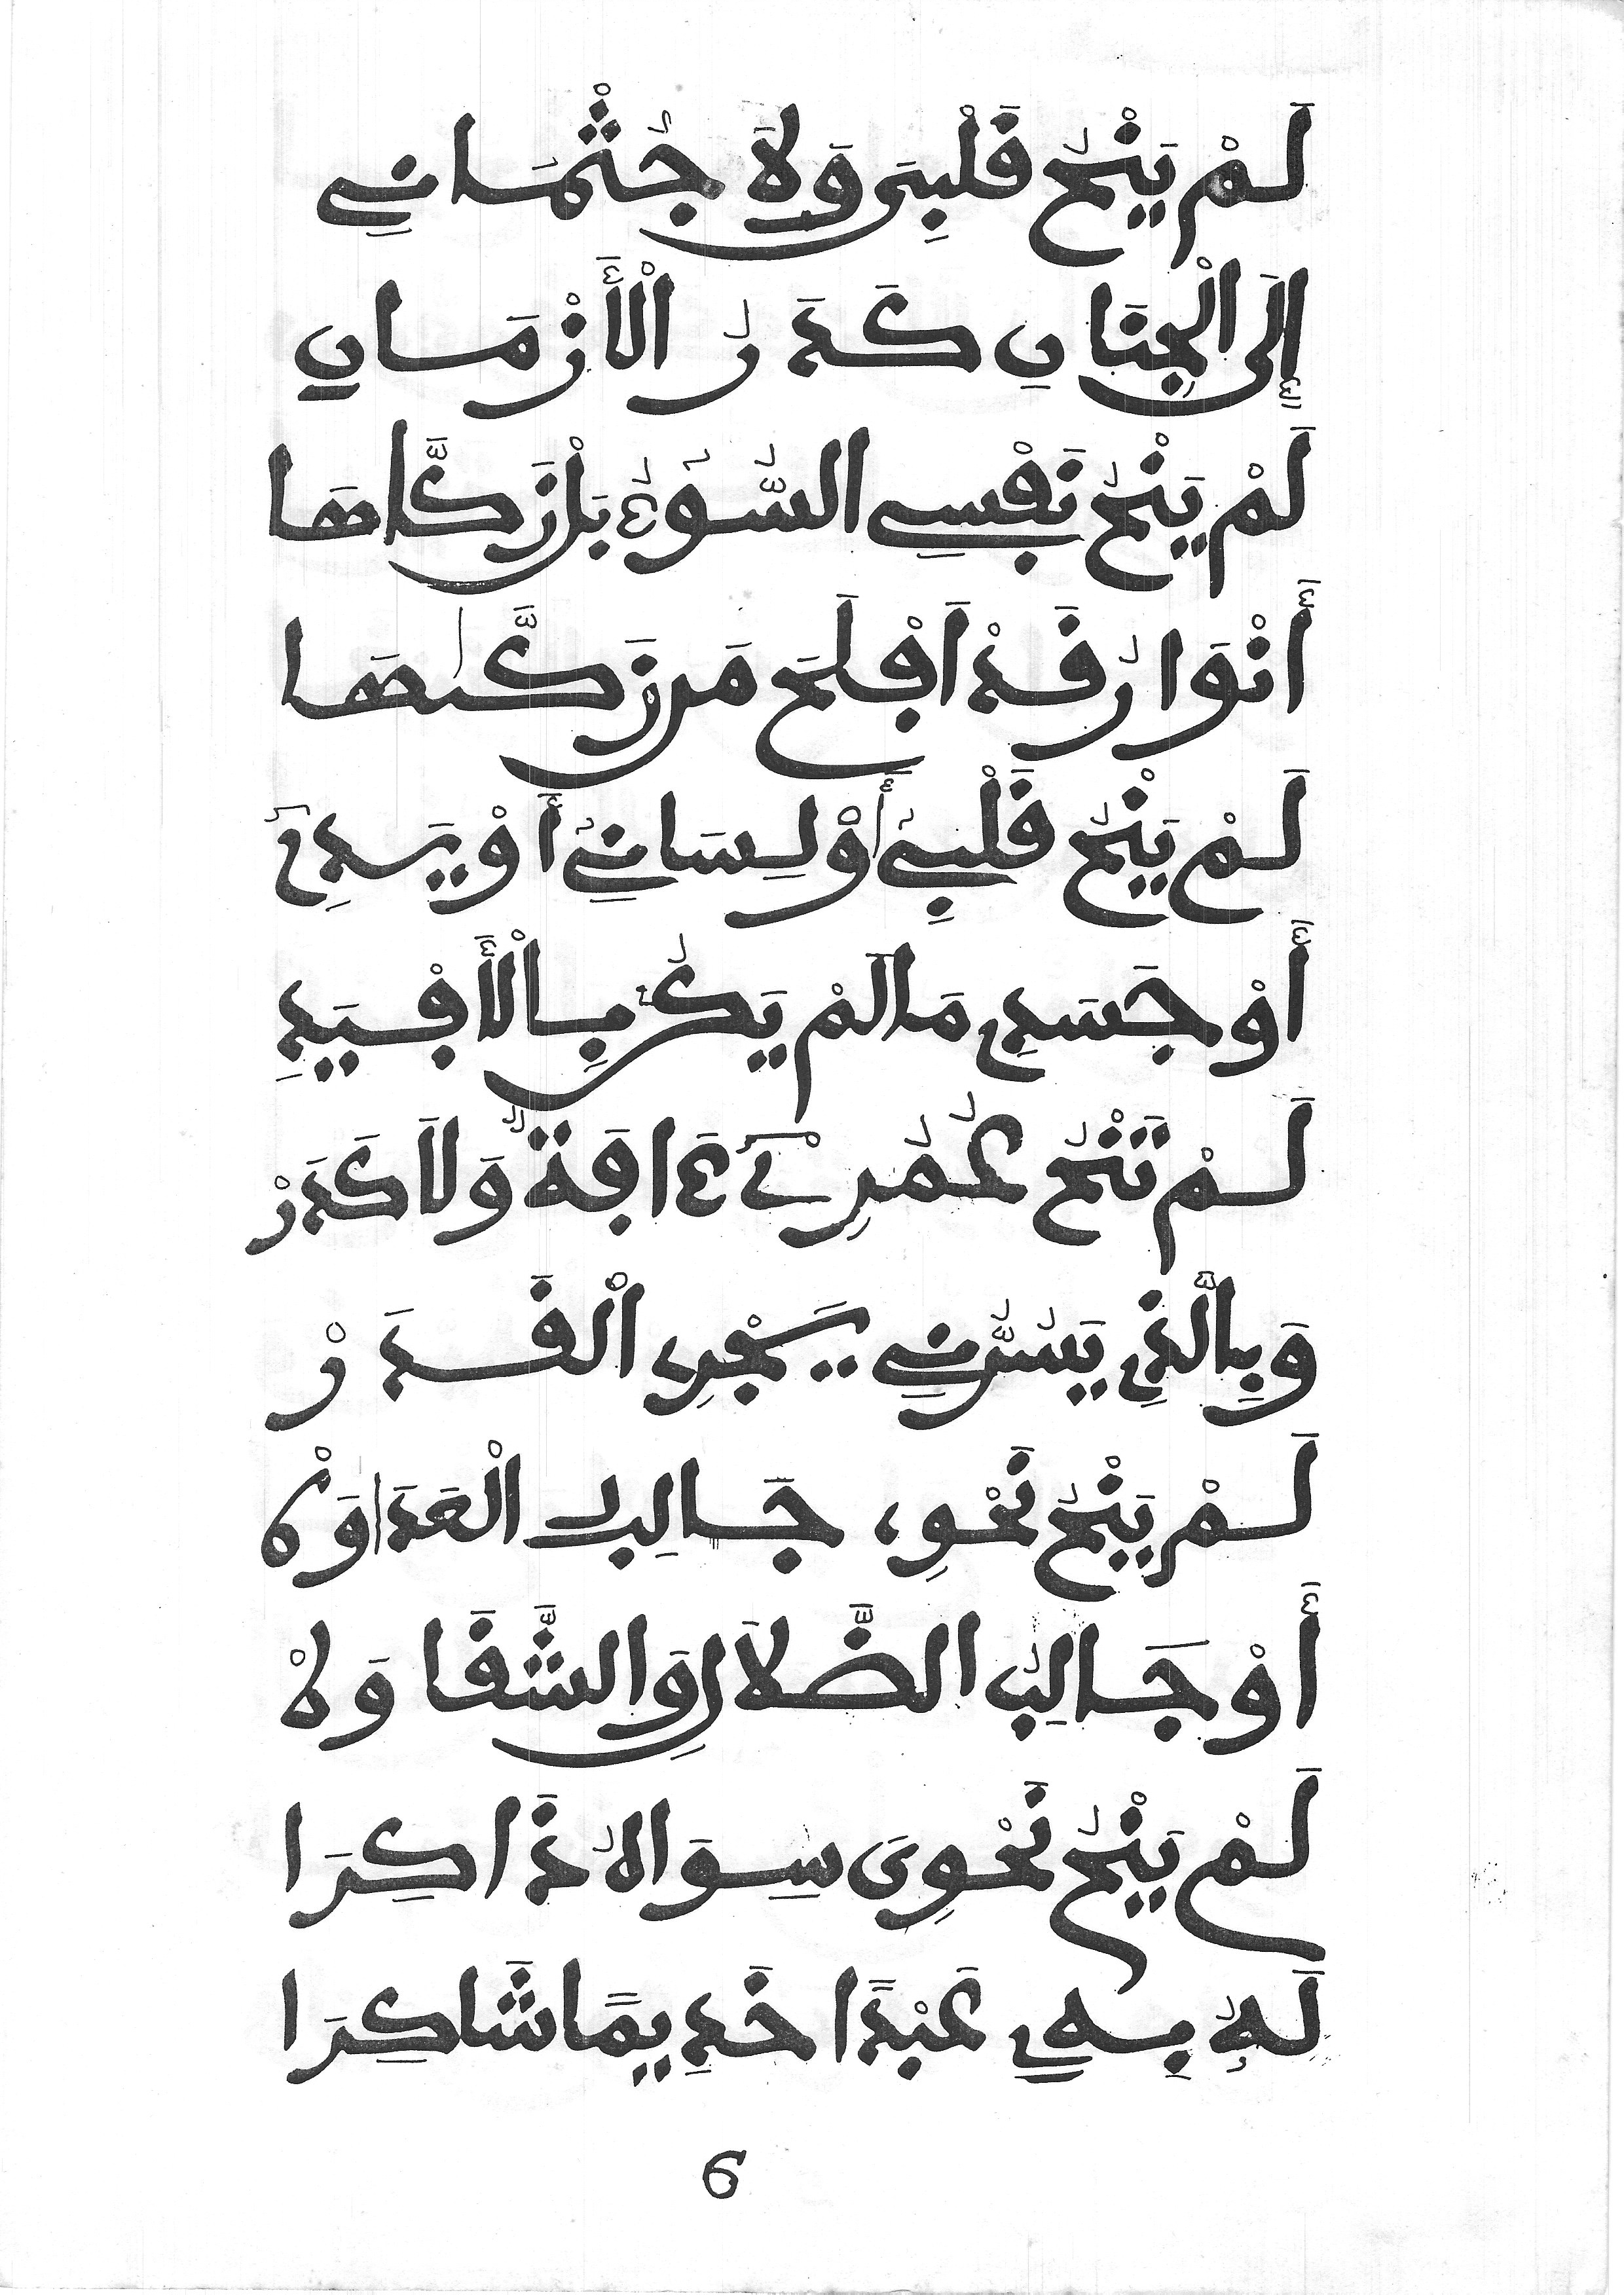 لَمْ يَنْحُ قَلْبِىَ وَلَا جُثْمَانِي
إِلَى الْجِنَانِ كَدَرُ الْأَزْمَانِ
لَمْ يَنْحُ نَفْسِي السُّوءُ بَلْ زَكَّاهَا
أَنْوَارُ قَدْ أَفْلَحَ مَن زَكَّىٰهَا
لَمْ يَنْحُ قَلْبِي أَوْ لِسَانِي أَوْ يَدِي
أَوْ جَسَدِي مَا لَمْ يَكُن بِالْأَفْيَدِ
لَمْ تَنْحُ عُمُرِي ءَافَةٌ وَلَا كَدَرْ
وَبِالَّذِي يَسُرُّنِي يَجْرِي الْقَدَرْ
لَمْ يَنْحُ نَحْوِي جَالِبُ الْعَدَاوَهْ
أَوْ جَالِبُ الضَّلَالِ وَالشَّقَاوَهْ
لَمْ يَنْحُ نَحْوِىَ سِوَاهُ ذَاكِرَا
لَهُ بِهِ عَبْدًا خَدِيمًا شَاكِرَا
6